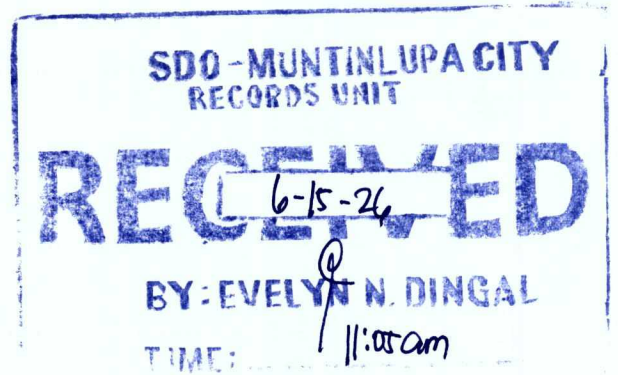 SDO-MUNTINLUPA CITY
RECORDS UNIT
RECEIVED
6-15-26
BY: EVELYN N. DINGAL
TIME: 11:05am